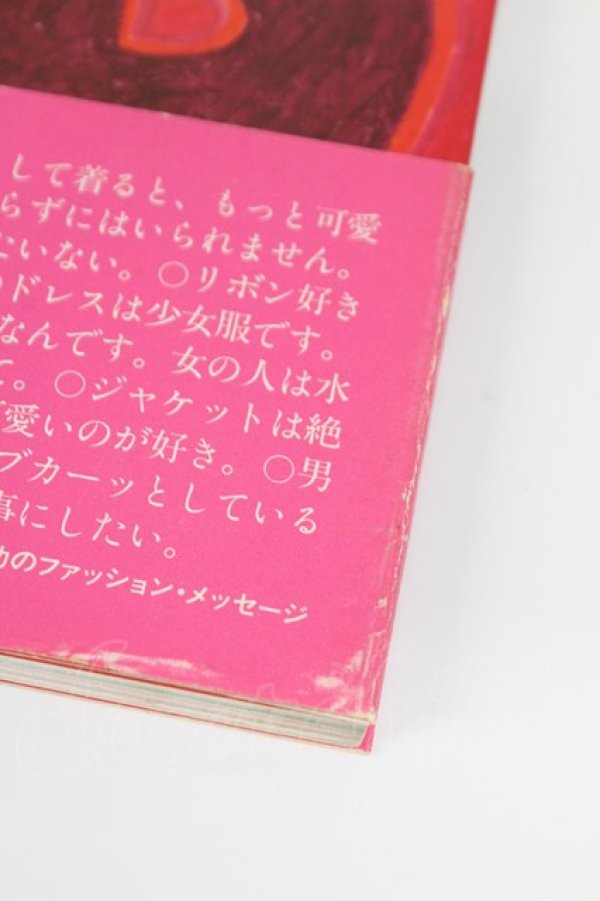 して着ると、もっと可愛
らずにはいられません。
たいない。○リボン好き
ドレスは少女服です。
なんです。女の人は水
。○ジャケットは絶
愛いのが好き。○男
ブカーッとしている
事にしたい。
のファッション・メッセージ